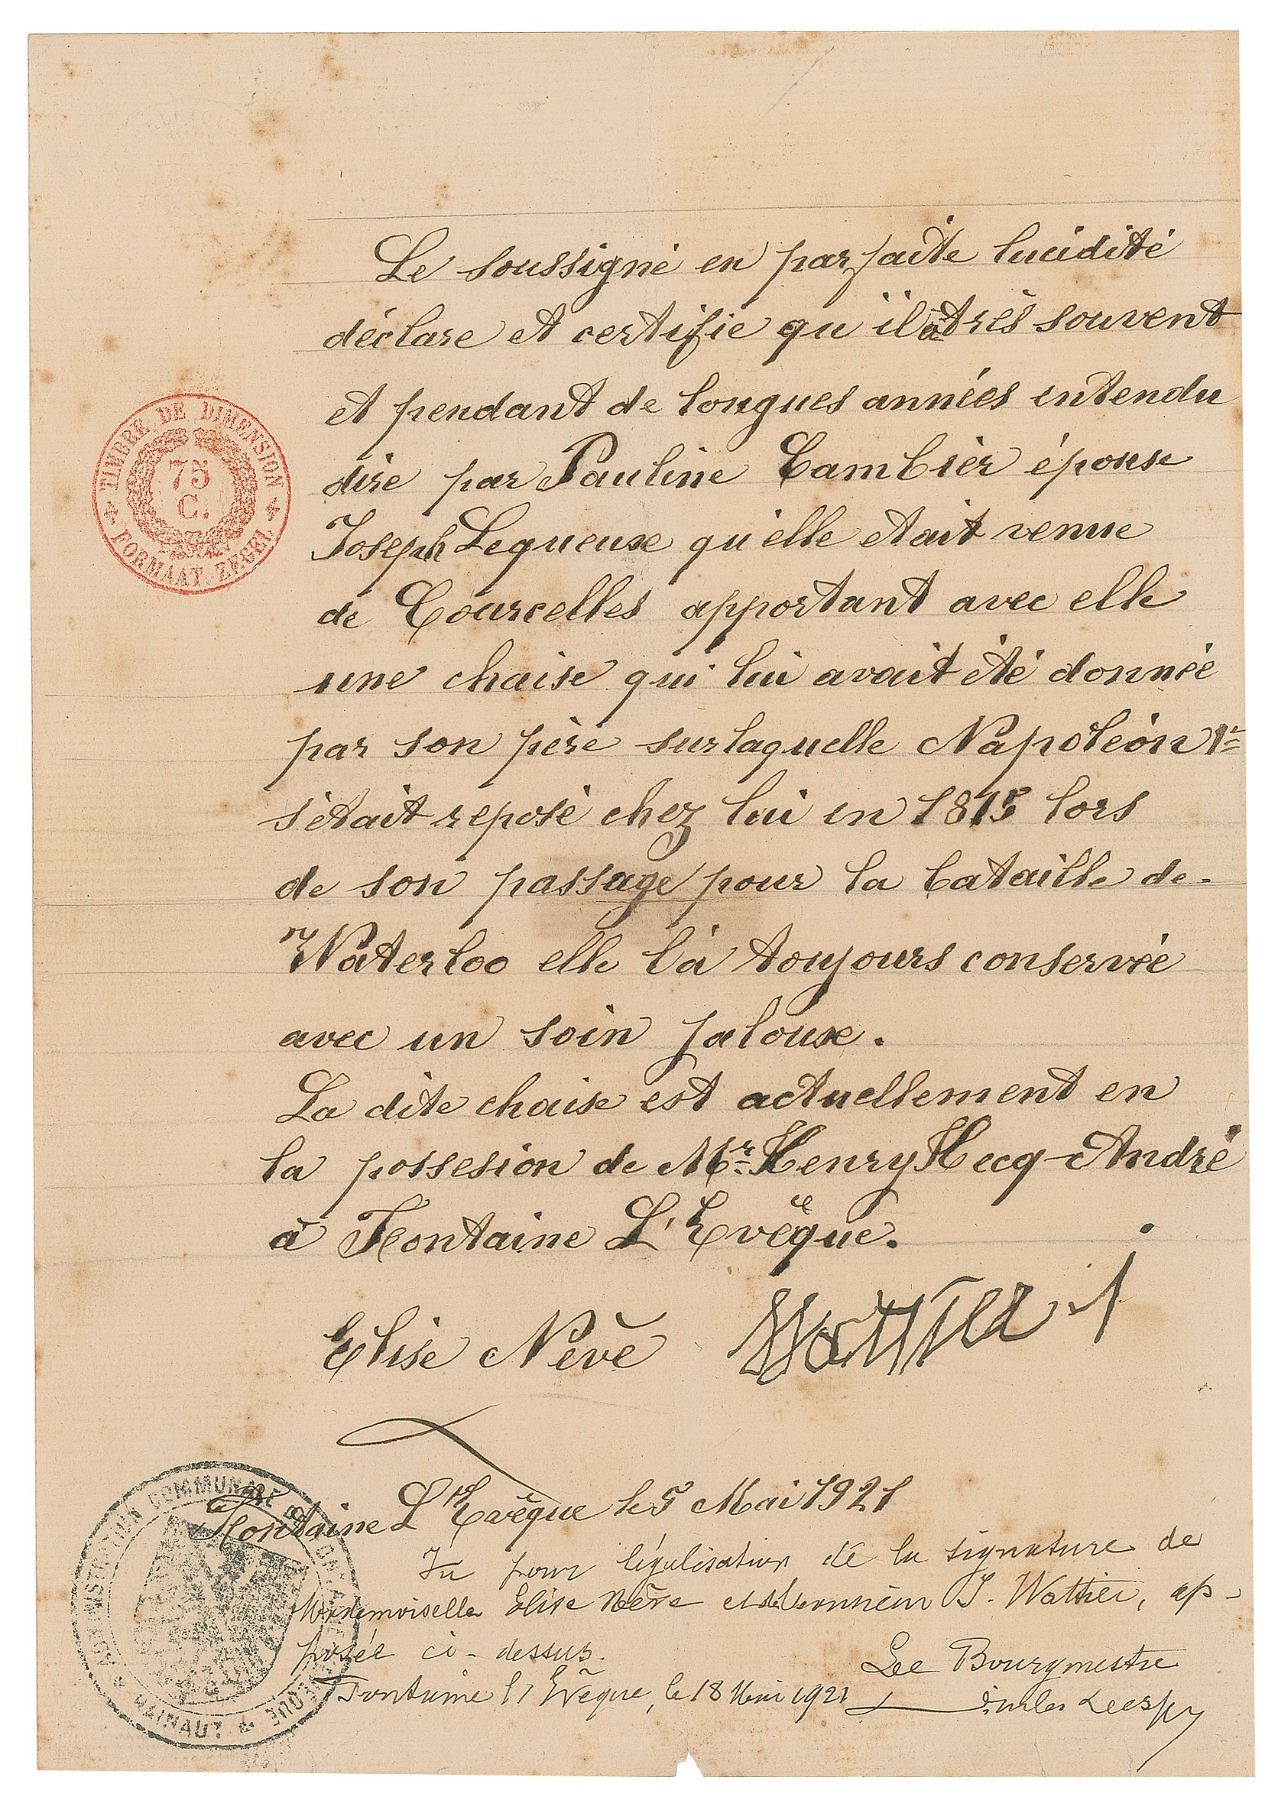 TIMBRE DE DIMENSION
75
C.
FORMAAT ZEGEL
Le soussigné en parfaite lucidité
déclare et certifie qu'il a très souvent
et pendant de longues années entendu
dire par Pauline Cambier épouse
Joseph Lequeuxe qu'elle était venue
de Courcelles apportant avec elle
une chaise qui lui avait été donnée
par son père sur laquelle Napoléon 1r
s'était reposé chez lui en 1815 lors
de son passage pour la bataille de
Waterloo elle l'a toujours conservée
avec un soin jaloux.
La dite chaise est actuellement en
la possesion de Mr Henry Hecq-André
à Fontaine L'Evêque.
Elise Nève Wattier J
Fontaine L'Evêque le 5 Mai 1921
Vu pour légalisation de la signature de
Mademoiselle Elise Nève et de Monsieur J. Wattier, ap-
posée ci-dessus.
Fontaine l'Evêque, le 18 Mai 1921
Le Bourgmestre
ADMINISTRATION COMMUNALE DE FONTAINE L'EVEQUE
HAINAUT